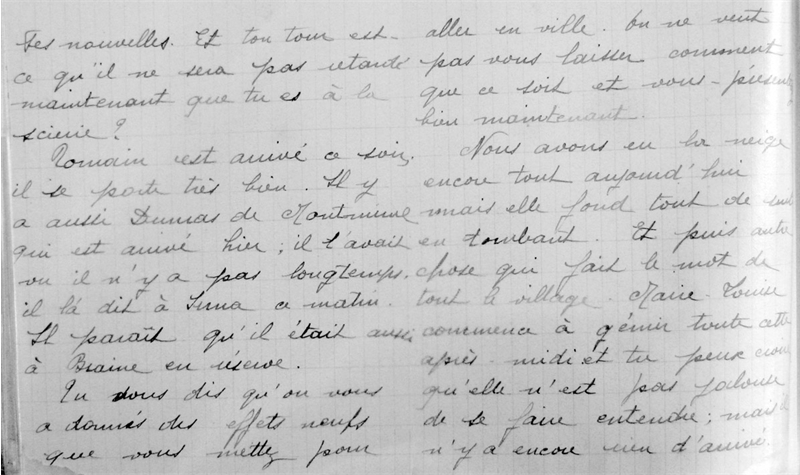 Tes nouvelles. Et ton tour est-
ce qu'il ne sera pas retardé
maintenant que tu es à la
scierie?
Romain est arivé ce soir,
il se porte très bien. Il y
a aussi Dumas de
qui est arivé hier; il t'avait
vu il n'y a pas longtemps.
il là dit à ce matin.
Il paraît qu'il était aussi
à Braine en réserve.
Tu dous dis qu'on vous
a donnés des effets neufs
que vous mettez pour
aller en ville. On ne veut
pas vous laisser comment
que ce soit et vous
bien maintenant.
Nous avons eu la neige
encore tout aujourd'hui
mais elle fond tout de suite
en tombant. Et puis autre
chose qui fait le mot de
tout le village. Marie-Louise
commence à gémir toute cette
après-midi et tu peux
qu'elle n'est pas jalouse
de se faire entendre; mais il
n'y a encore rien d'arivé.